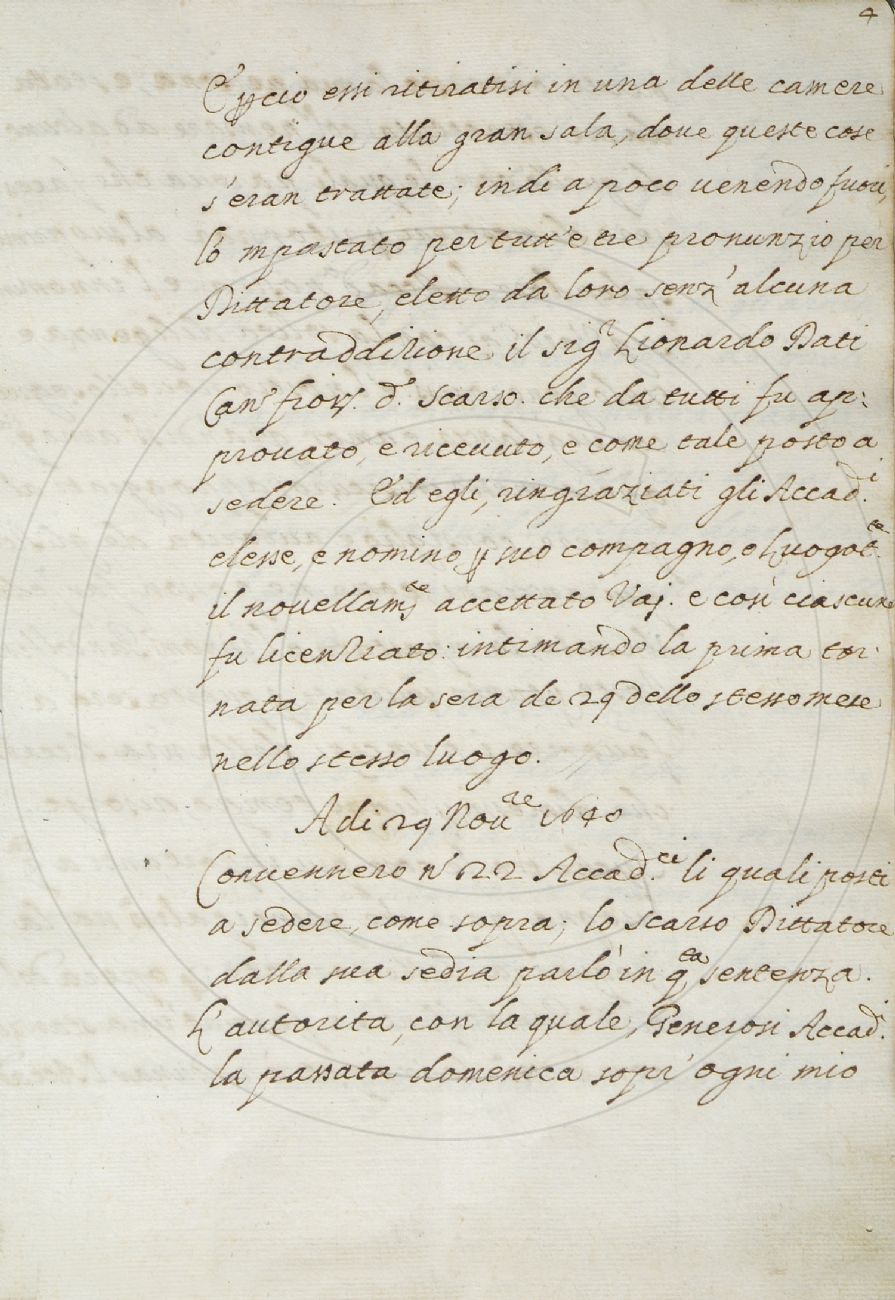 4
E p cio essi ritiratisi in una delle camere
contigue alla gran sala, doue queste cose
s'eran trattate; indi a poco uenendo fuori,
lò mpastato per tutt'e tre pronunziò per
Dittatore, eletto da loro senz'alcuna
contraddizione il sigr Lionardo Dati
Canco fiorno. do. Scarso. che da tutti fu ap:
prouato, e riceuuto, e come tale posto a
sedere. Ed egli, ringraziati gli Accadi.
elesse, e nominò p suo compagno, o Luogote.
il nouellamte accettato Vaj. e così ciascuno
fu licenziato: intimando la prima tor:
nata per la sera de 29 dello stesso mese
nello stesso luogo.
A di 29 Noure 1640
Conuennero no 22 Accadci. li quali posti
a sedere, come sopra; lo scarso Dittatore
dalla sua sedia parlò in qta sentenza.
L'autorità, con la quale, Generosi Accadi.
la passata domenica sopr'ogni mio